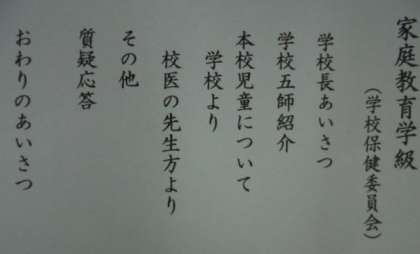 家庭教育学級
(学校保健委員会)
学校長あいさつ
学校五師紹介
本校児童について
学校より
校医の先生方より
その他
質疑応答
おわりのあいさつ